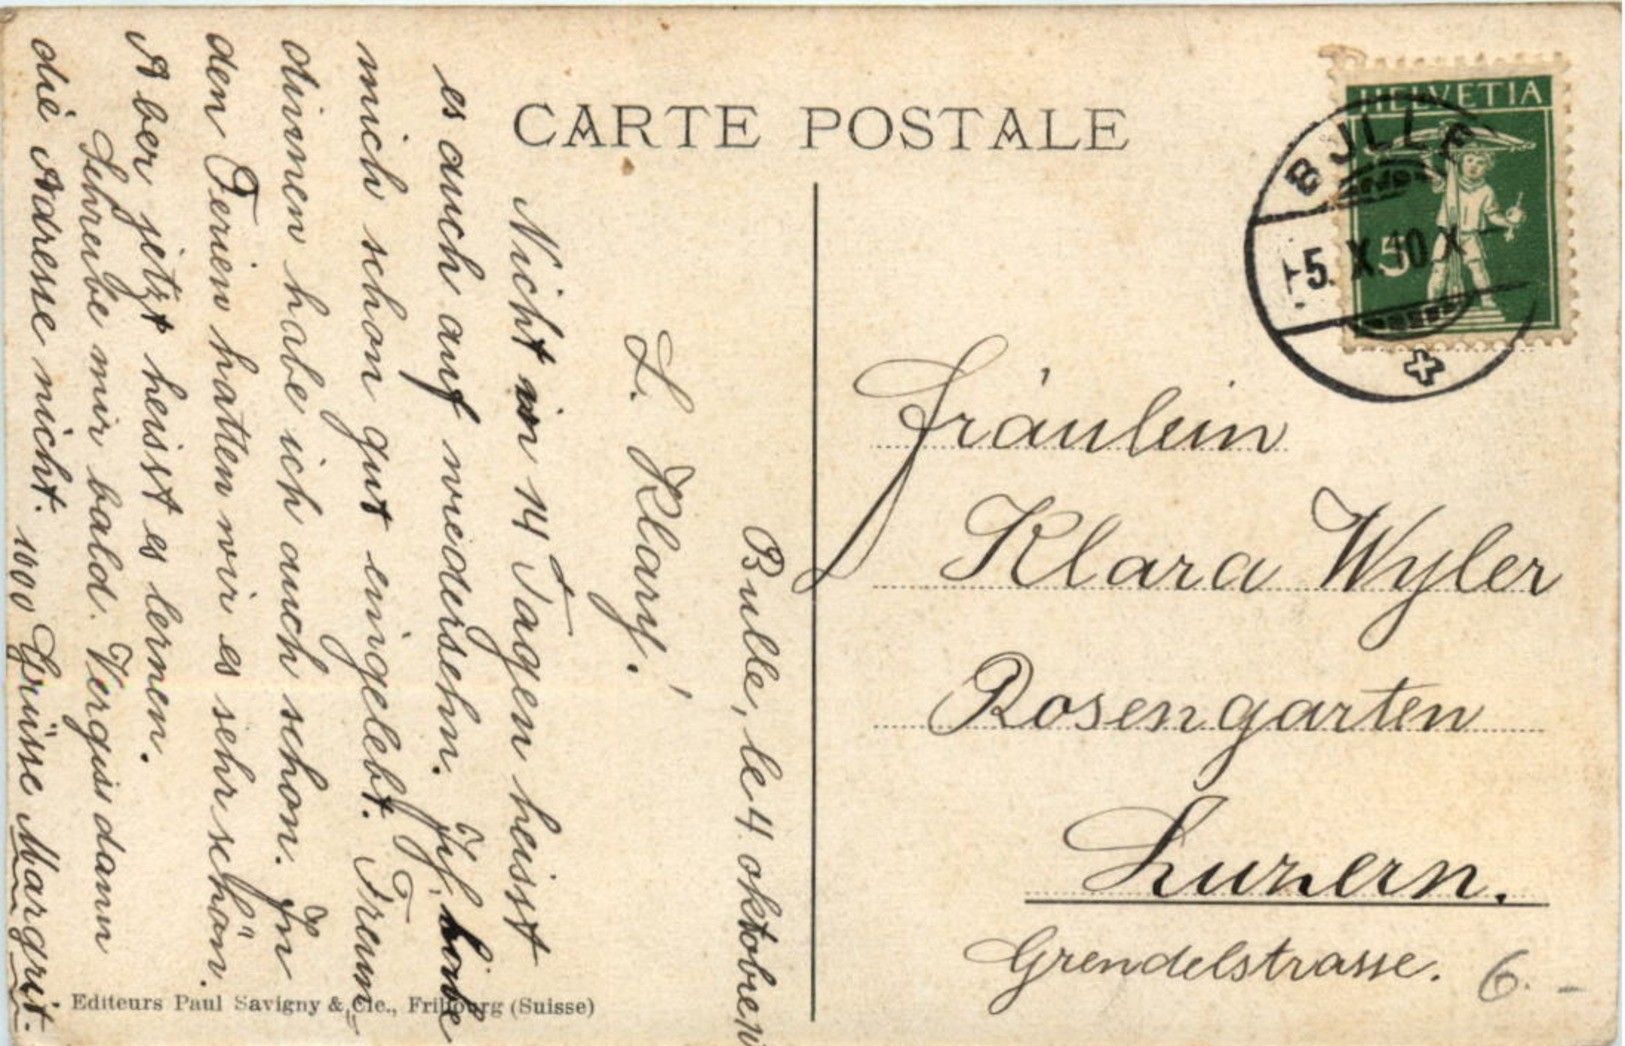 CARTE POSTALE
HELVETIA
5
BULLE
-5. X. 10. X
Bulle, le 4. oktobre
L. Klary!
Nicht in 14 Tagen heisst
es auch auf wiedersehn. Ich habe
mich schon gut eingelebt. Freun-
dinnen habe ich auch schon. In
den Ferien hatten wir es sehr schön.
Aber jetzt heisst es lernen.
Schreibe mir bald. Vergiss dann
die Adresse nicht. 1000 Grüsse Margrit.
Fräulein
Klara Wyler
Rosengarten
Luzern.
Grendelstrasse.
6.-
Editeurs Paul Savigny & Cie., Fribourg (Suisse)